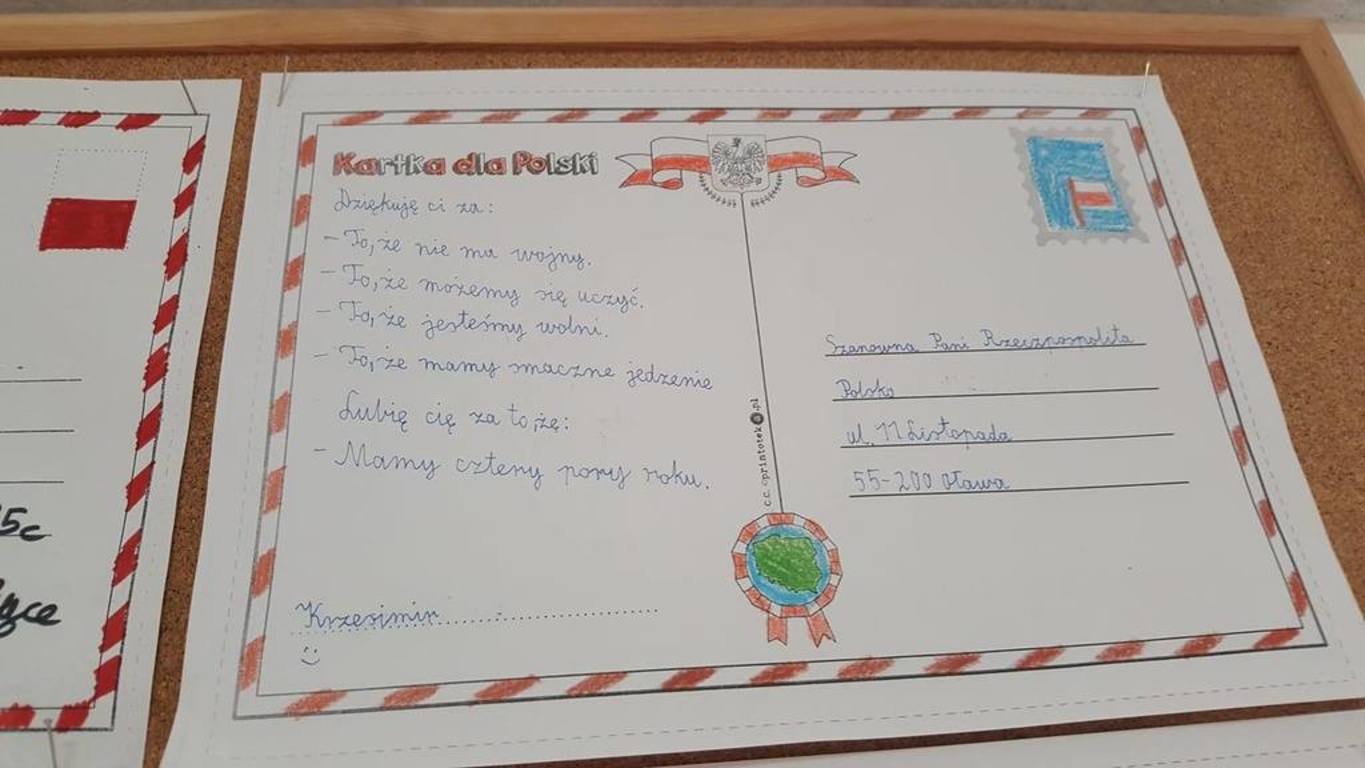 Kartka dla Polski
Dziękuję ci za:
- To, że nie ma wojny.
- To, że możemy się uczyć.
- To, że jesteśmy wolni.
- To, że mamy smaczne jedzenie
Lubię cię za to, że:
- Mamy cztery pory roku.
Krzesimir
:)
Szanowna Pani Rzeczpospolita
Polska
ul. 11 Listopada
55-200 Oława
c.c. printoteka.pl
5c